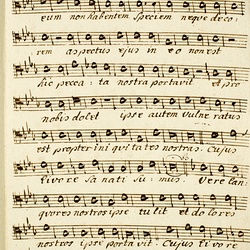 eum non habentem speciem neque deco-
rem aspectus ejus in eo non est
hic pecca- ta nostra portavit et pro
nobis dolet ipse autem vulne ratus
est propter ini qui ta tes nostras. Cujus
livore sa nati su- mus. Vere lan
quores nostros ipse tu lit et do lores
nostros ipse porta vit. Cujus li vo re